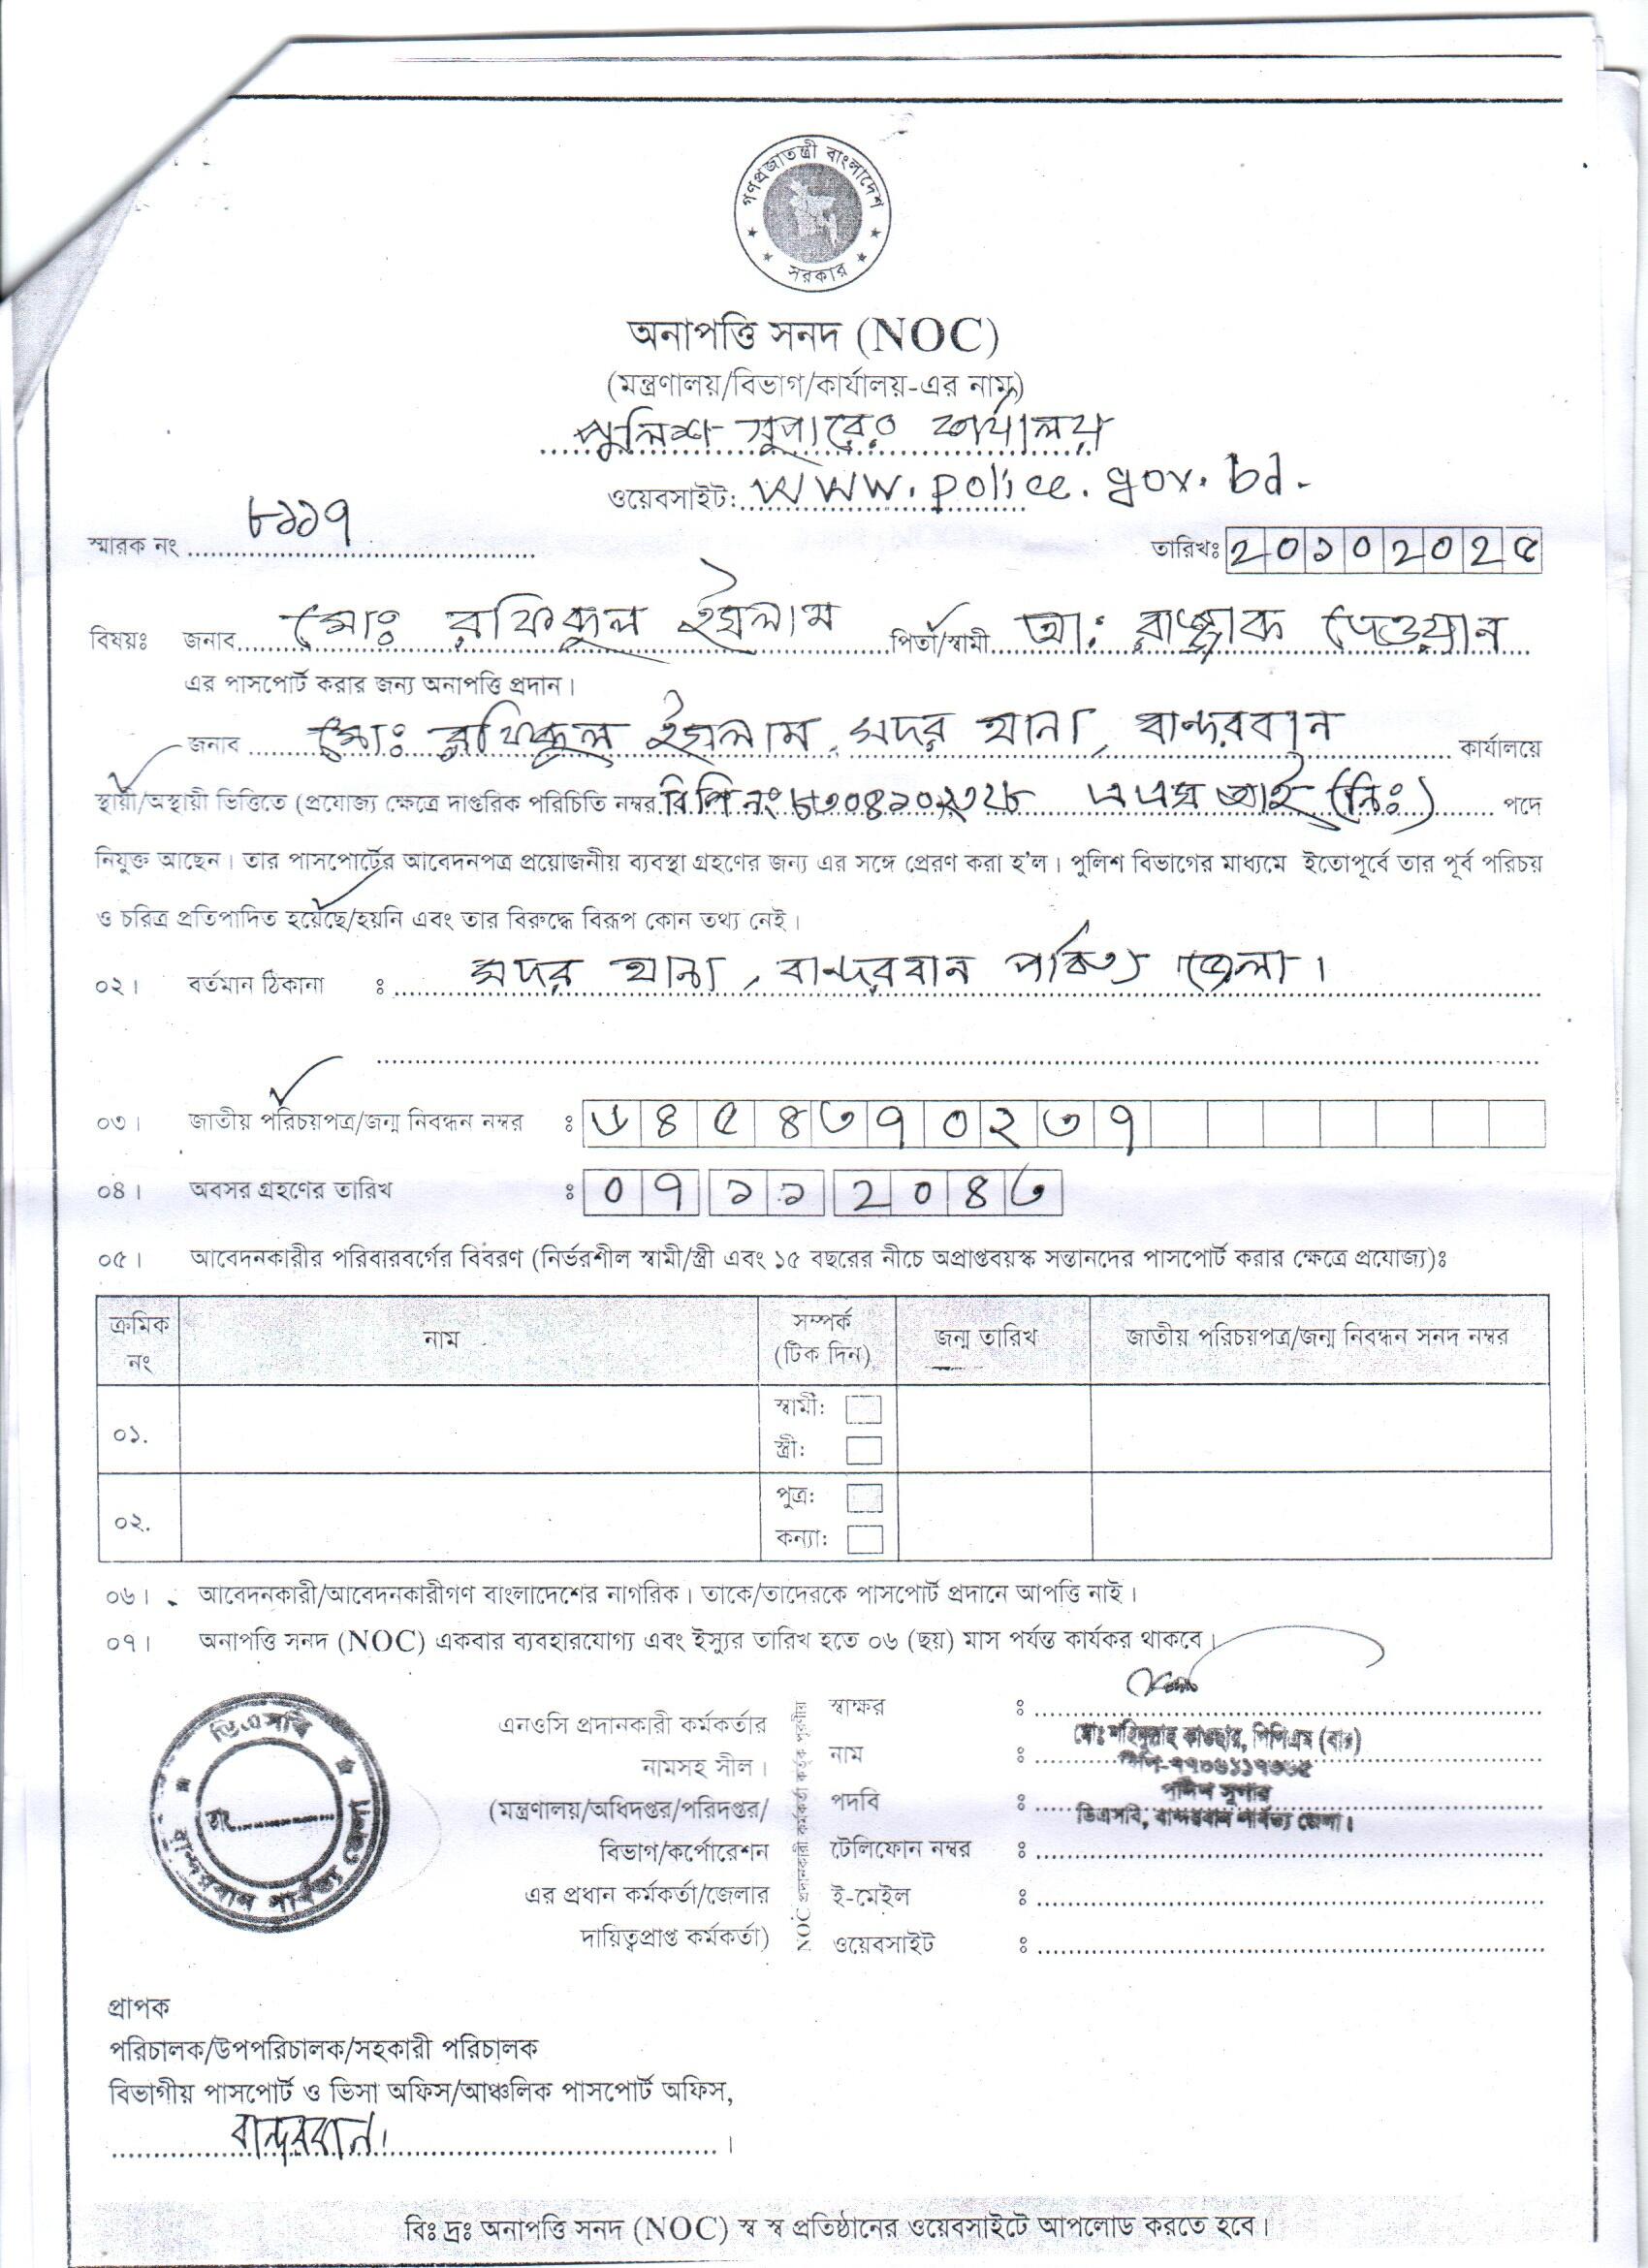 গণপ্রজাতন্ত্রী বাংলাদেশ
সরকার
অনাপত্তি সনদ (NOC)
(মন্ত্রণালয়/বিভাগ/কার্যালয়-এর নাম)
পুলিশ সুপারের কার্যালয়
ওয়েবসাইট: www.police.gov.bd.
স্মারক নং ৮১১৭
তারিখঃ ২০১০২০২৫
বিষয়ঃ জনাব মোঃ রফিকুল ইসলাম পিতা/স্বামী আঃ রাজ্জাক দেওয়ান
এর পাসপোর্ট করার জন্য অনাপত্তি প্রদান।
জনাব মোঃ রফিকুল ইসলাম, সদর থানা, বান্দরবান কার্যালয়ে
স্থায়ী/অস্থায়ী ভিত্তিতে (প্রযোজ্য ক্ষেত্রে দাপ্তরিক পরিচিতি নম্বর বিপি নং এএসআই (নিঃ) পদে
নিযুক্ত আছেন। তার পাসপোর্টের আবেদনপত্র প্রয়োজনীয় ব্যবস্থা গ্রহণের জন্য এর সঙ্গে প্রেরণ করা হ'ল। পুলিশ বিভাগের মাধ্যমে ইতোপূর্বে তার পূর্ব পরিচয়
ও চরিত্র প্রতিপাদিত হয়েছে/হয়নি এবং তার বিরুদ্ধে বিরূপ কোন তথ্য নেই।
০২। বর্তমান ঠিকানা ঃ সদর থানা, বান্দরবান পার্বত্য জেলা।
০৩। জাতীয় পরিচয়পত্র/জন্ম নিবন্ধন নম্বর ঃ ৬৪৫৪৩৭০২৩৭
০৪। অবসর গ্রহণের তারিখ ঃ ০৭ ১১ ২০৪৩
০৫। আবেদনকারীর পরিবারবর্গের বিবরণ (নির্ভরশীল স্বামী/স্ত্রী এবং ১৫ বছরের নীচে অপ্রাপ্তবয়স্ক সন্তানদের পাসপোর্ট করার ক্ষেত্রে প্রযোজ্য)ঃ
ক্রমিক নং নাম সম্পর্ক (টিক দিন) জন্ম তারিখ জাতীয় পরিচয়পত্র/জন্ম নিবন্ধন সনদ নম্বর
০১. স্বামী:
স্ত্রী:
০২. পুত্র:
কন্যা:
০৬। আবেদনকারী/আবেদনকারীগণ বাংলাদেশের নাগরিক। তাকে/তাদেরকে পাসপোর্ট প্রদানে আপত্তি নাই।
০৭। অনাপত্তি সনদ (NOC) একবার ব্যবহারযোগ্য এবং ইস্যুর তারিখ হতে ০৬ (ছয়) মাস পর্যন্ত কার্যকর থাকবে।
ডিএসবি
তাং
বান্দরবান পার্বত্য জেলা
এনওসি প্রদানকারী কর্মকর্তার
নামসহ সীল।
(মন্ত্রণালয়/অধিদপ্তর/পরিদপ্তর/
বিভাগ/কর্পোরেশন
এর প্রধান কর্মকর্তা/জেলার
দায়িত্বপ্রাপ্ত কর্মকর্তা)
NOC প্রদানকারী কর্মকর্তা কর্তৃক পূরণীয়
স্বাক্ষর ঃ
মোঃ শহিদুল্লাহ কাওছার, পিপিএম (বার)
নাম ঃ
পুলিশ সুপার
পদবি ঃ
ডিএসবি, বান্দরবান পার্বত্য জেলা।
টেলিফোন নম্বর ঃ
ই-মেইল ঃ
ওয়েবসাইট ঃ
প্রাপক
পরিচালক/উপপরিচালক/সহকারী পরিচালক
বিভাগীয় পাসপোর্ট ও ভিসা অফিস/আঞ্চলিক পাসপোর্ট অফিস,
বান্দরবান।
বিঃ দ্রঃ অনাপত্তি সনদ (NOC) স্ব স্ব প্রতিষ্ঠানের ওয়েবসাইটে আপলোড করতে হবে।